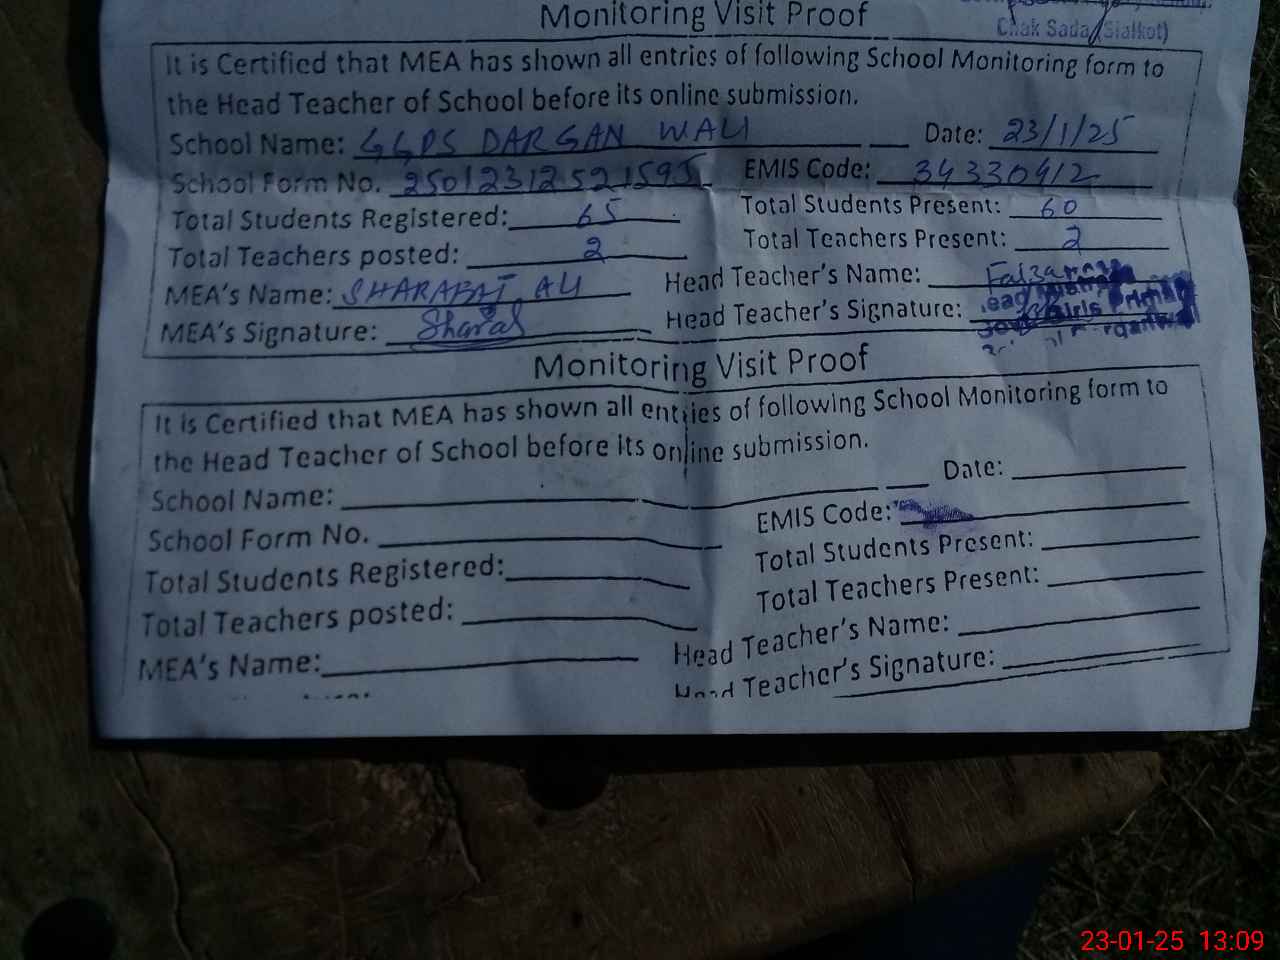 Chak Sada (Sialkot)
Monitoring Visit Proof
It is Certified that MEA has shown all entries of following School Monitoring form to
the Head Teacher of School before its online submission.
School Name: GGPS DARGAN WALI Date: 23/1/25
School Form No. 25012312521595 EMIS Code: 34330412
Total Students Registered: 65 Total Students Present: 60
Total Teachers posted: 2 Total Teachers Present: 2
MEA's Name: SHARAFAT ALI Head Teacher's Name: Faizana
MEA's Signature: Sharaf Head Teacher's Signature:
Girls Prim
Monitoring Visit Proof
It is Certified that MEA has shown all entries of following School Monitoring form to
the Head Teacher of School before its online submission.
School Name: Date:
School Form No. EMIS Code:
Total Students Registered: Total Students Present:
Total Teachers posted: Total Teachers Present:
MEA's Name: Head Teacher's Name:
Head Teacher's Signature:
23-01-25 13:09